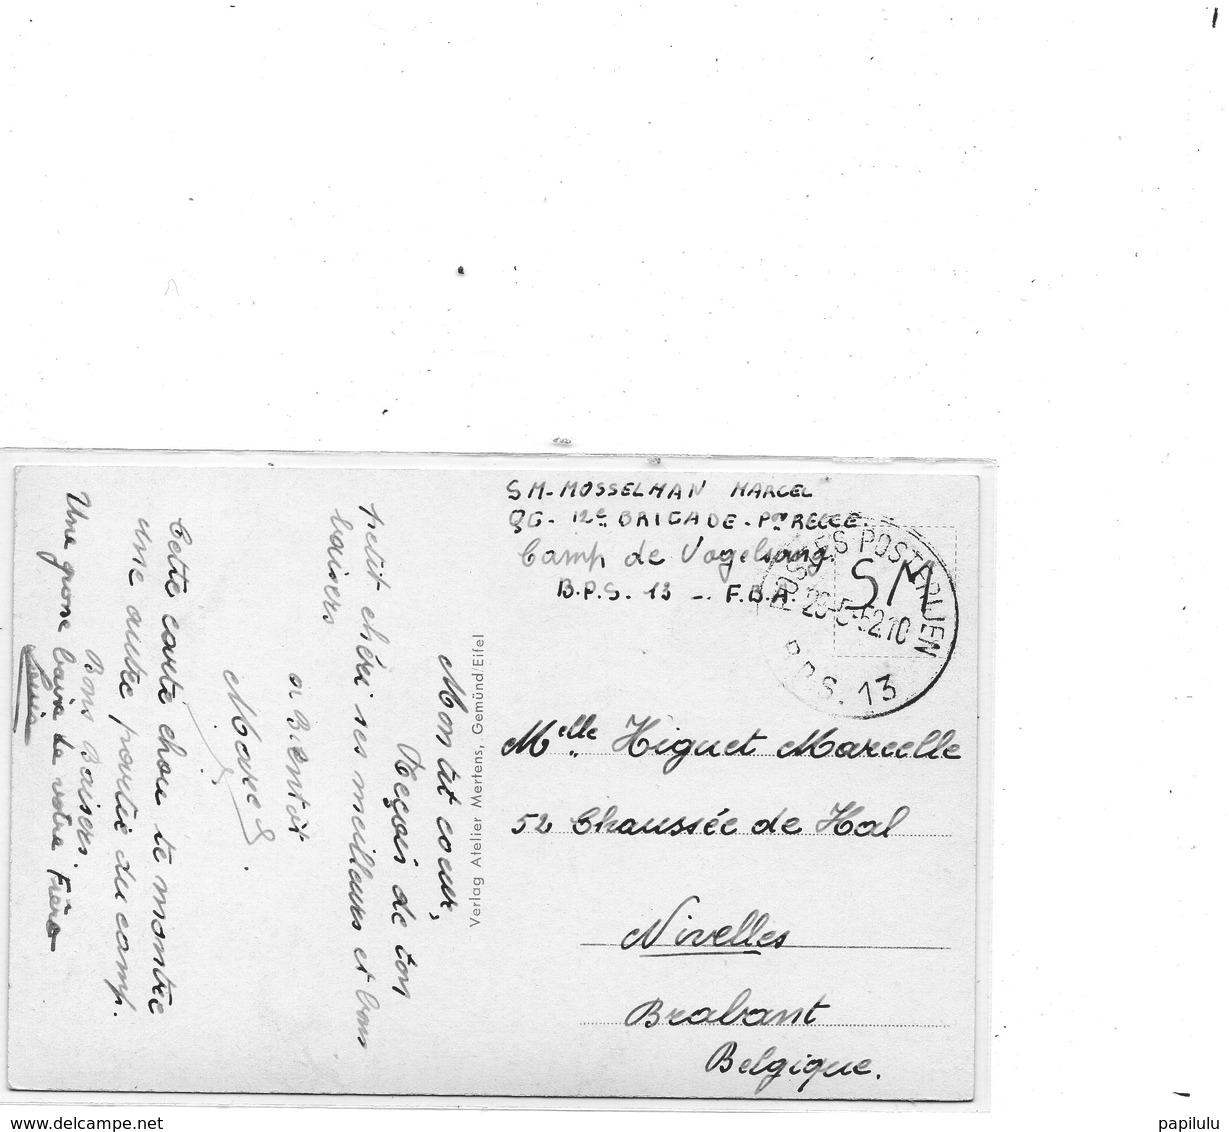 SM-MOSSELMAN MARCEL
QG- 12e BRIGADE-
Camp de Vogelsang
B.P.S. 13 - F.B.A.
POSTES POSTERIJEN
SM
29-5-52 10
B.P.S. 13
Melle Higuet Marcelle
52 Chaussée de Hal
Nivelles
Brabant
Belgique.
Verlag Atelier Mertens, Gemünd/Eifel
Mon tit coeur,
Reçois de ton
petit chéri ses meilleurs et bons
baisers
a Bientôt
Marcel
Cette carte chou te montre
une autre partie du camp.
Bons Baisers.
Une grosse baise de votre Frère
Louis
www.delcampe.net
papilulu